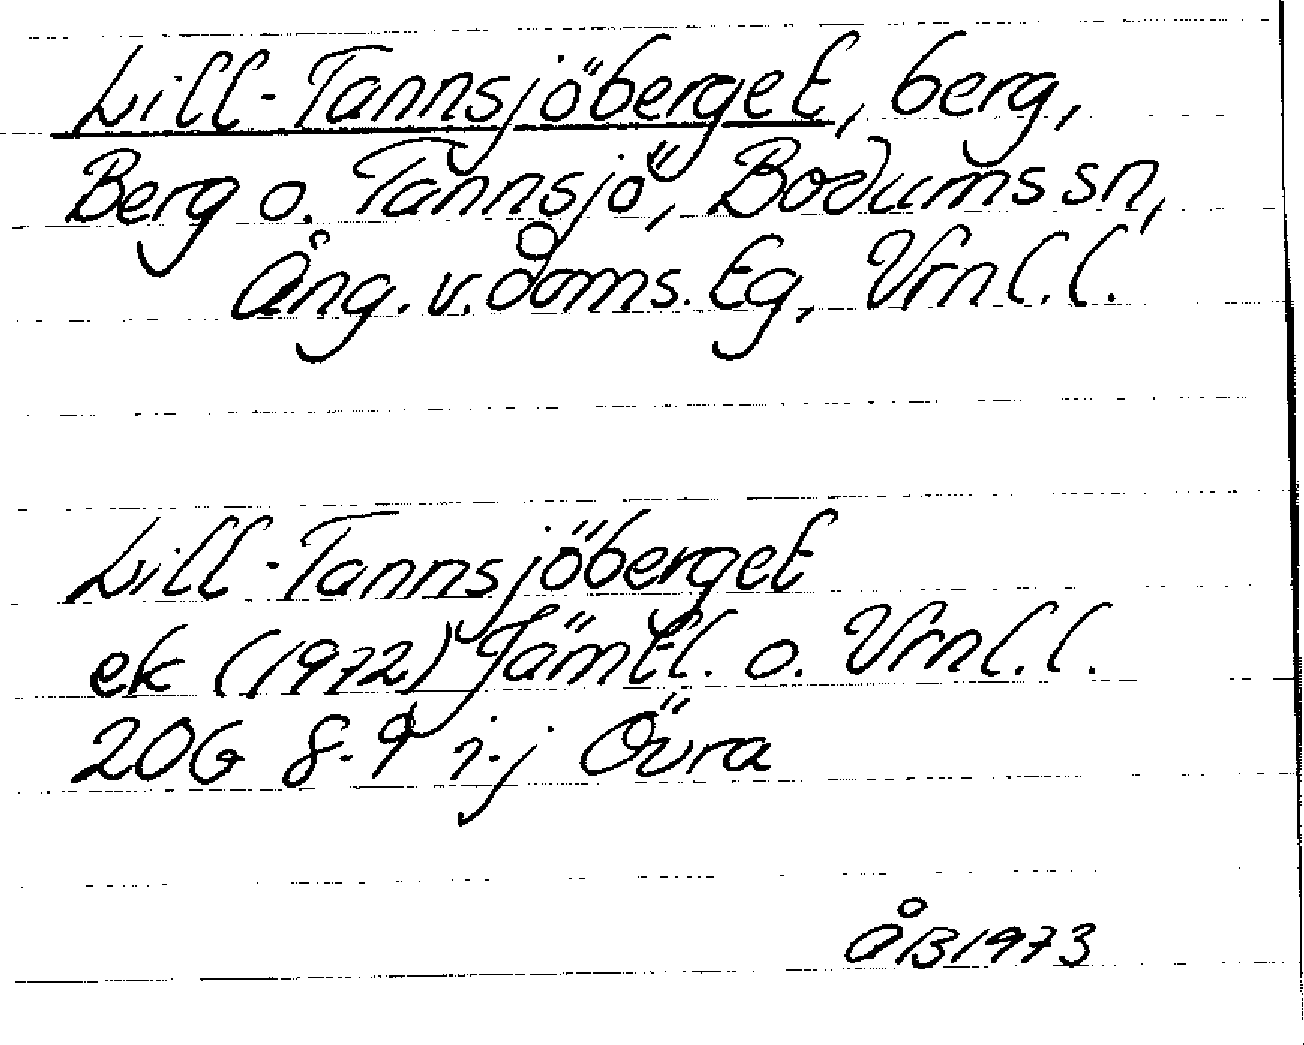 Lill-Tannsjöberget, berg,
Berg o. Tannsjö, Bodums sn,
Ång. v. doms. tg, Vrnl. l.
Lill-Tannsjöberget
ek (1972) Jämtl. o. Vrnl. l.
20G 8-9 i-j Övra
ÅB 1973